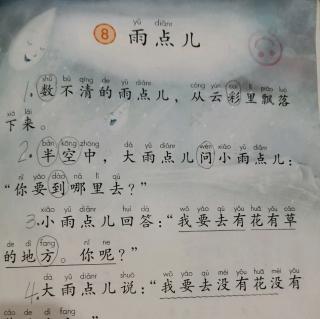 yǔ diǎnr
8 雨点儿
shǔ bù qīng de yǔ diǎnr cóng yún cai lǐ piāo luò
1.数不清的雨点儿，从云彩里飘落
xià lái
下来。
bàn kōng zhōng dà yǔ diǎnr wèn xiǎo yǔ diǎnr
2.半空中，大雨点儿问小雨点儿：
nǐ yào dào nǎ lǐ qù
“你要到哪里去？”
xiǎo yǔ diǎnr huí dá wǒ yào qù yǒu huā yǒu cǎo
3.小雨点儿回答：“我要去有花有草
de dì fang nǐ ne
的地方。你呢？”
dà yǔ diǎnr shuō wǒ yào qù méi yǒu huā méi yǒu
4.大雨点儿说：“我要去没有花没有
cǎo de dì fang